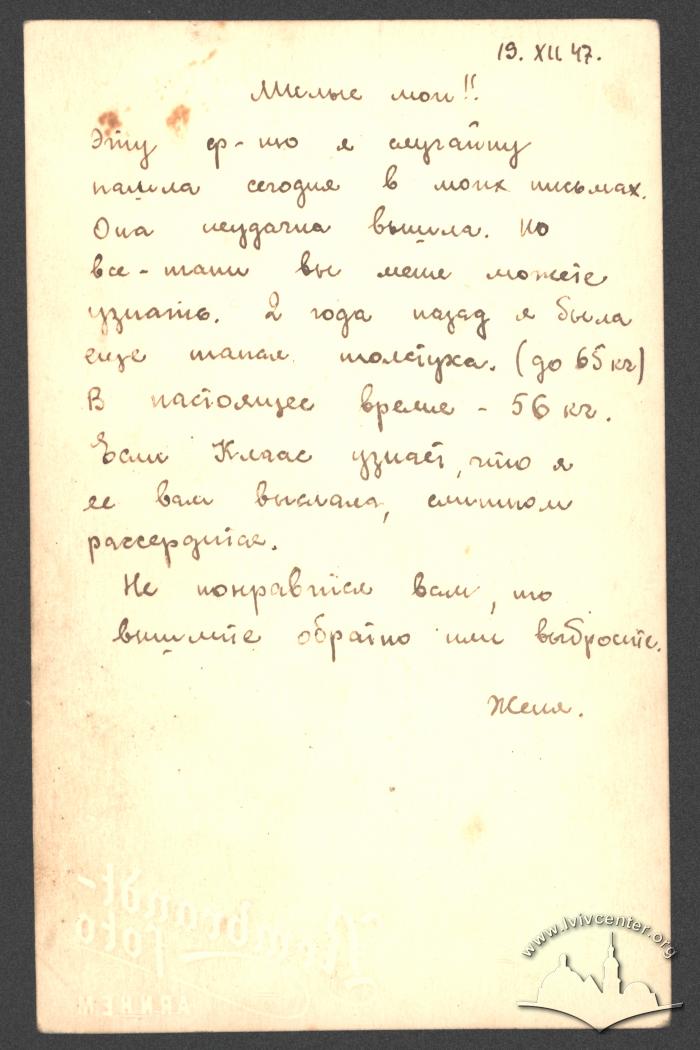 19. XII 47.
Милые мои!!
Эту ф-ию я случайну
нашла сегодня в моих письмах.
Она неудачна вышла. Но
все-таки вы меня можете
узнать. 2 года назад я была
еще такая толстуха. (до 65 кг)
В настоящее время - 56 кг.
Если Клаас узнает, что я
ее вам выслала, слишком
рассердится.
Не понравится вам, то
вышлите обратно или выбросите.
Женя.
Rembrandt-
foto
ARNHEM
www.lvivcenter.org